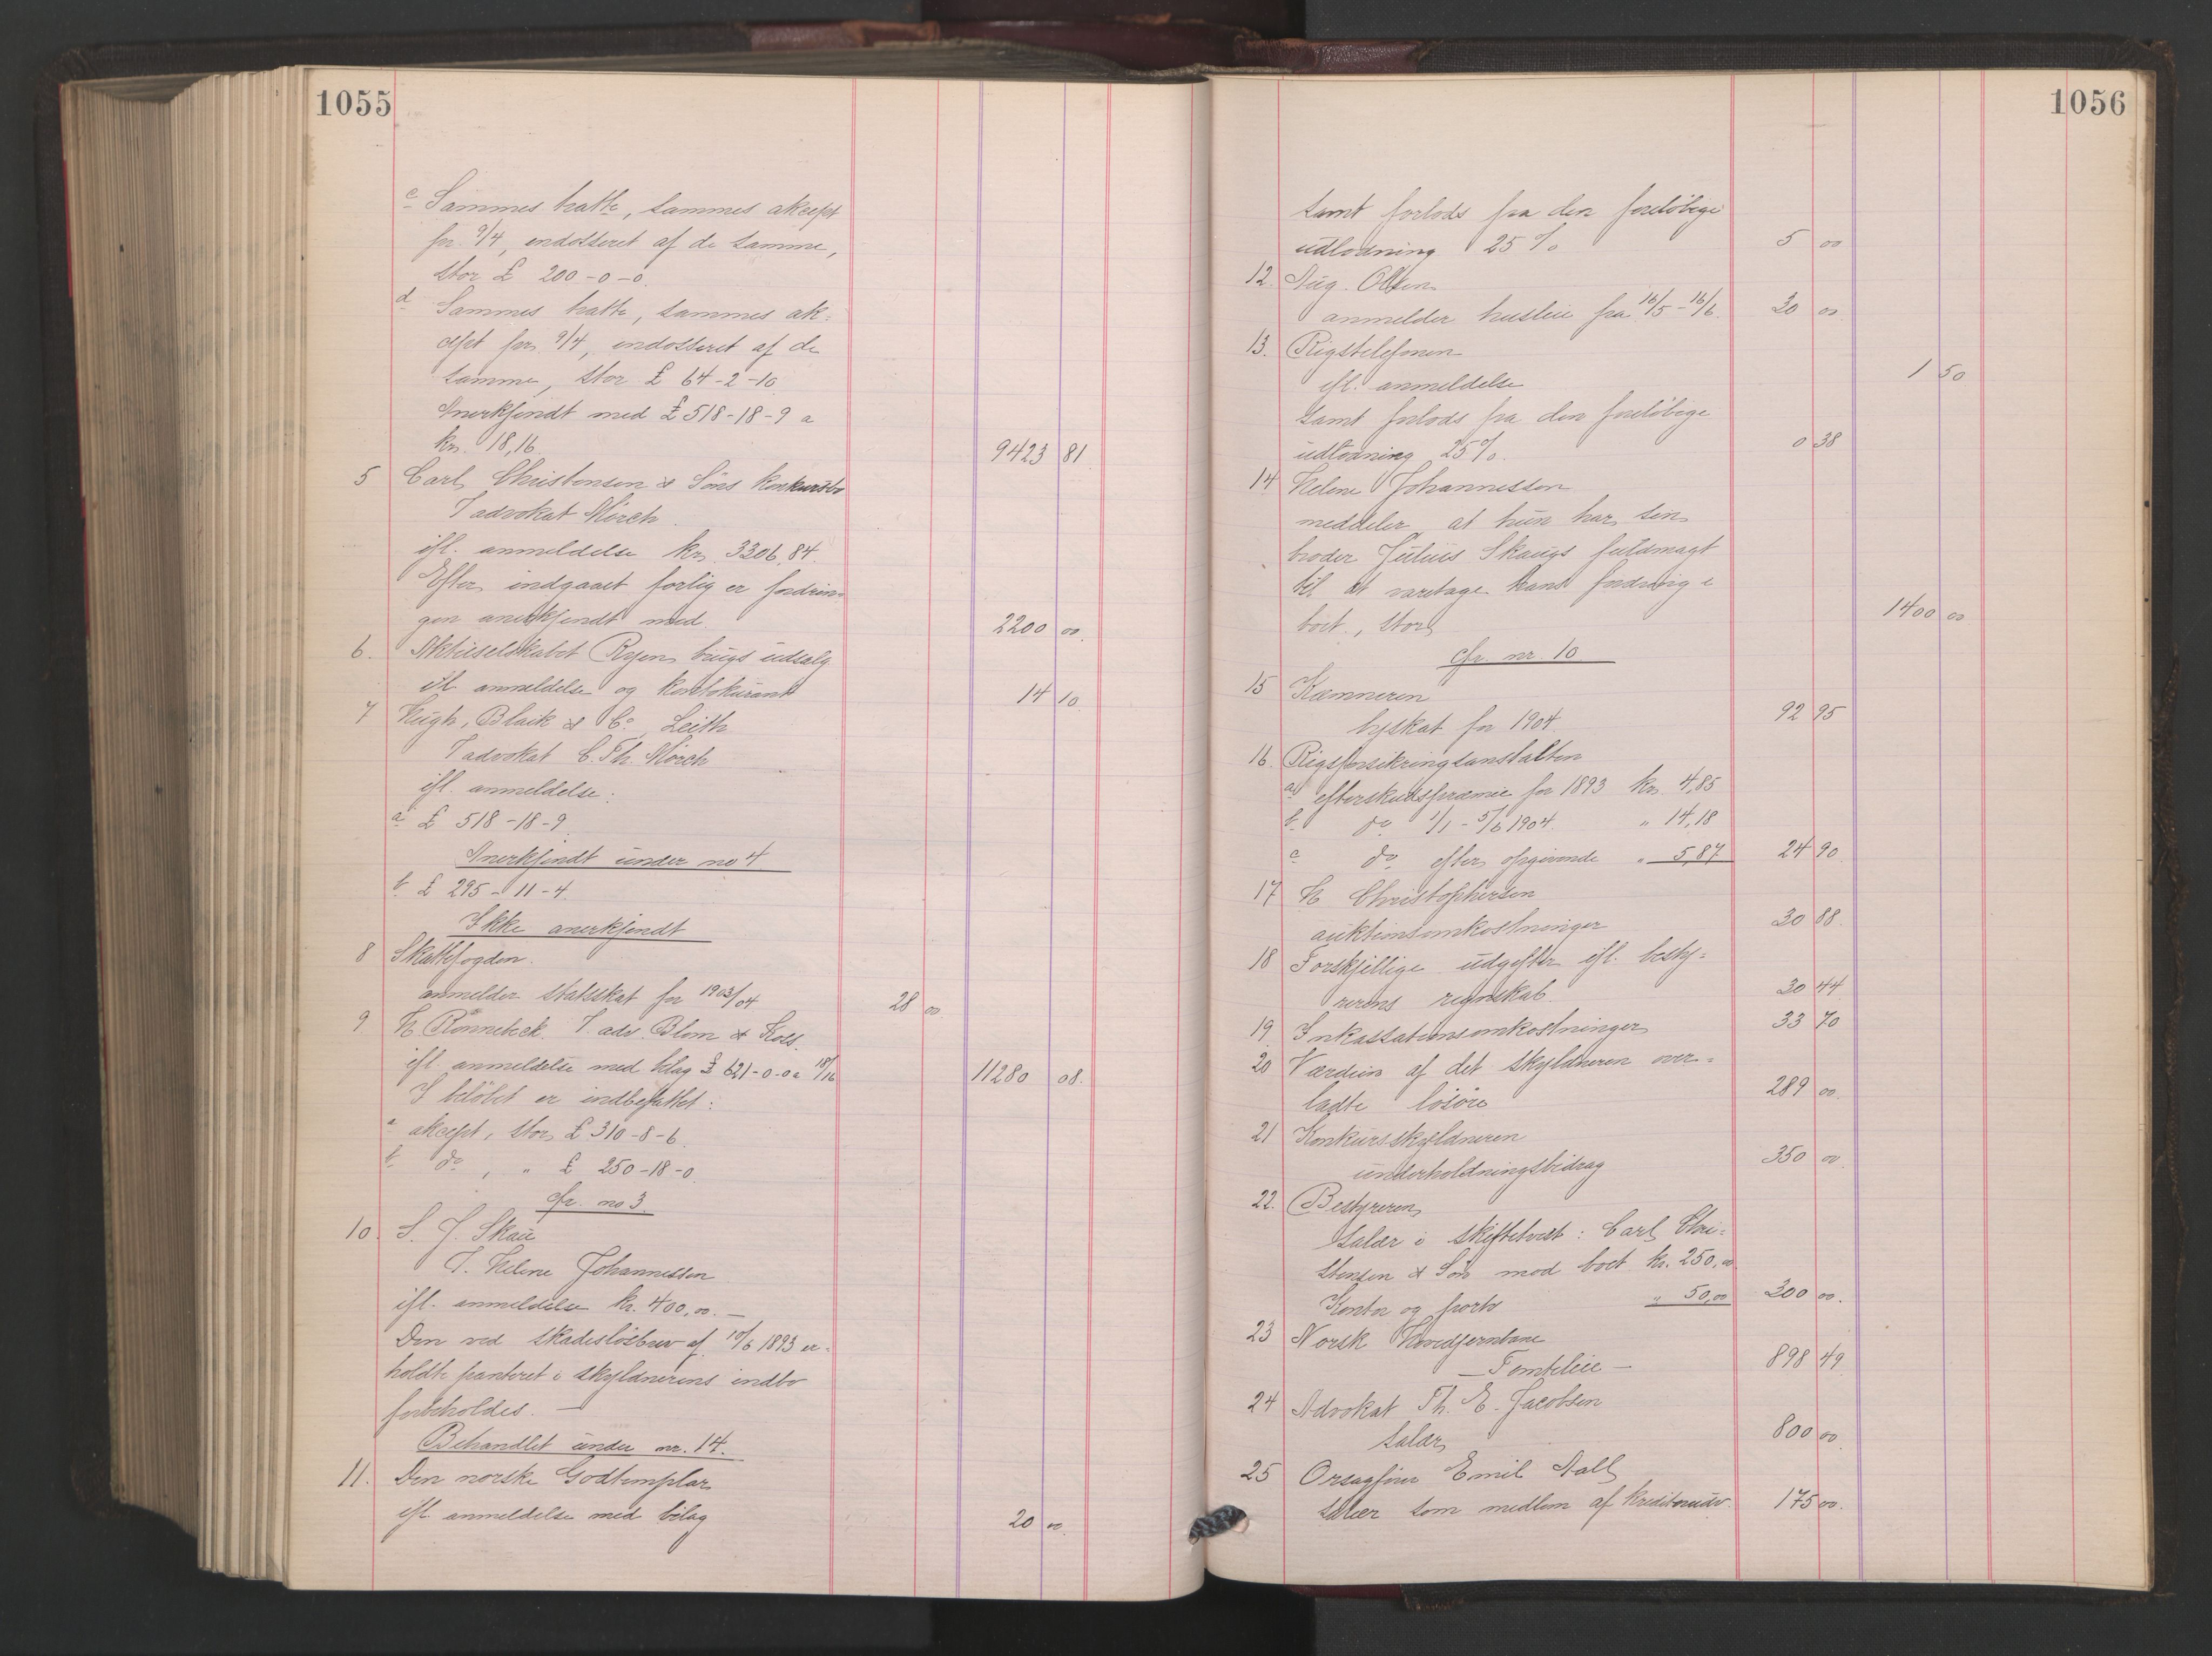 1055
c Sammes tratte, sammes aksept
pr. 9/4, endosseret af de samme,
stor £ 200-0-0.
d Sammes tratte, sammes ak=
cept pr. 9/4, endosseret af de
samme, stor £ 64-2-10
Anerkjendt med £ 518-18-9 a
kr. 18,16 9423 81.
5 Carl Christensen & Søns konkursbo
T advokat Mörch.
ifl. anmeldelse kr. 3306,84.
Efter indgaaet forlig er fordrin
gen anerkjendt med 2200 00.
6. Aktieselskabet Ryens brugs udsalg
ifl anmeldelse og kontokurant 14 10.
7 Hugh, Blaik & Co, Leith
T advokat C. Th. Mörch
ifl. anmeldelse:
a £ 518-18-9.
Anerkjendt under no 4.
b £ 295-11-4.
Ikke anerkjendt
8 Skattefogden.
anmelder statsskat for 1903/04 28 00
9. H Rönnebeck. T. adv. Blom & Koss.
ifl. anmeldelse med bilag £ 621-0-0 a 18/16 11280 08.
I belöbet er indbefattet:
a akcept, stor £ 310-8-6.
b do, " £ 250-18-0.
cfr. no 3.
10. S. J. Skau
T. Helene Johannessen
ifl. anmeldelse kr. 400,00. —
Den ved skadeslösbrev af 10/6 1893 er=
holdte panteret i skyldnerens indbo
forbeholdes. —
Behandlet under nr. 14.
11. Den norske Godtemplar
ifl. anmeldelse med bilag 20 00.
1056
samt forlods fra den forelöbige
udlodning 25 % 5 00
12. Aug. Olsen
anmelder husleie fra 16/5 - 16/6. 30 00
13. Rigstelefonen
ifl. anmeldelse 1 50
samt forlods fra den forelöbige
udlodning 25%. 0 38
14 Helene Johannessen
meddeler at hun har sin
broder Julius Skaugs fuldmagt
til at varetage hans fordring i
boet, stor 1400 00
cfr. nr. 10
15 Kæmneren
byskat for 1904 92 95
16. Rigsforsikringsanstalten
a efterskudspræmie for 1893 kr. 4,85
b. do 1/1 - 5/6 1904. " 14,18
c do efter opgivende " 5,87 24 90.
17 H Christophersen
auktionsomkostninger 30 88.
18 Forskjellige udgifter ifl. besty=
rerens regnskab. 30 44
19 Inkassationsomkostninger 33 70
20 Værdien af det skyldneren over=
ladte lösöre 289 00.
21 Konkursskyldneren
underholdningsbidrag 350 00.
22. Bestyreren
salær i skiftetvist: Carl Chri=
stensen & Sön mod boet kr. 250,00
Kontor og porto " 50,00 300 00.
23 Norsk Hovedjernbane
— Tomteleie — 898 49.
24 Advokat Th. E. Jacobsen
salær 800 00.
25 Orsagförer Emil Aall
salær som medlem af kreditorudv. 175 00.